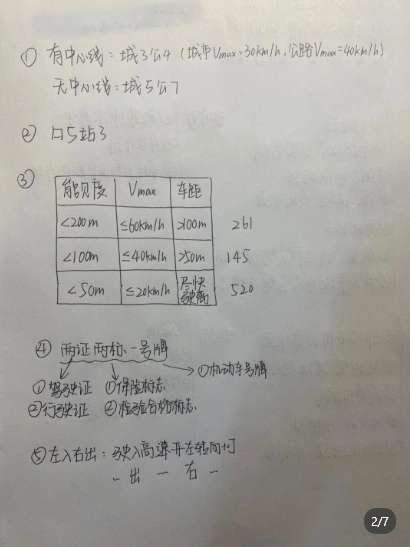 ① 有中心线：城3公4（城市Vmax=30km/h，公路Vmax=40km/h)
无中心线：城5公7
② 口5站3
③
能见度 Vmax 车距
<200m ≤60km/h >100m 261
<100m ≤40km/h >50m 145
<50m ≤20km/h 尽快驶离 520
④ 两证两标一号牌
①驾驶证 ①保险标志 →①机动车号牌
②行驶证 ②检验合格标志
⑤左入右出：驶入高速开左转向灯
～出～右～
2/7